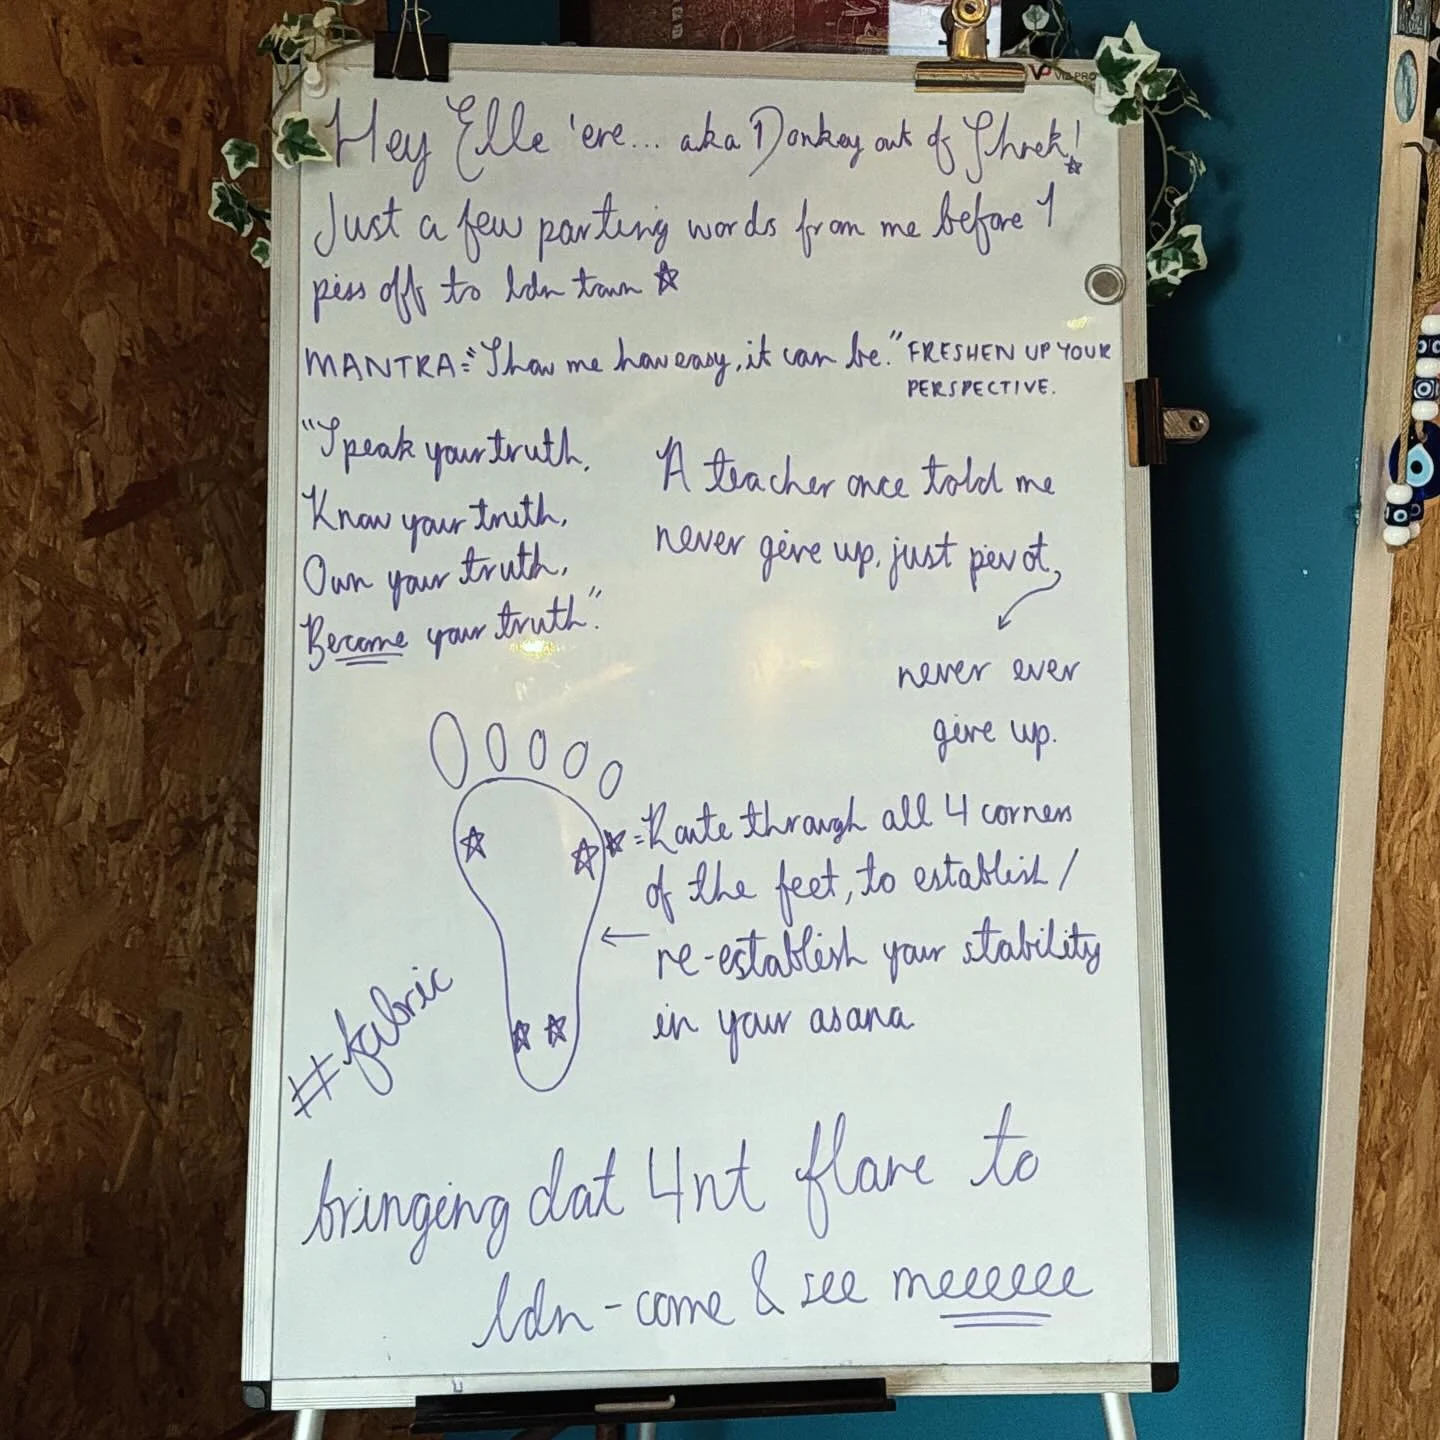 VIZ-PRO
Hey Elle 'ere... aka Donkey out of Shrek!
Just a few parting words from me before I
piss off to ldn town
MANTRA = "Show me how easy, it can be." FRESHEN UP YOUR
PERSPECTIVE.
"Speak your truth,
Know your truth,
Own your truth,
Become your truth."
A teacher once told me
never give up, just pivot,
never ever
give up.
= Route through all 4 corners
of the feet, to establish/
re-establish your stability
in your asana
#fabric
bringing dat 4nt flare to
ldn - come & see meeeeee